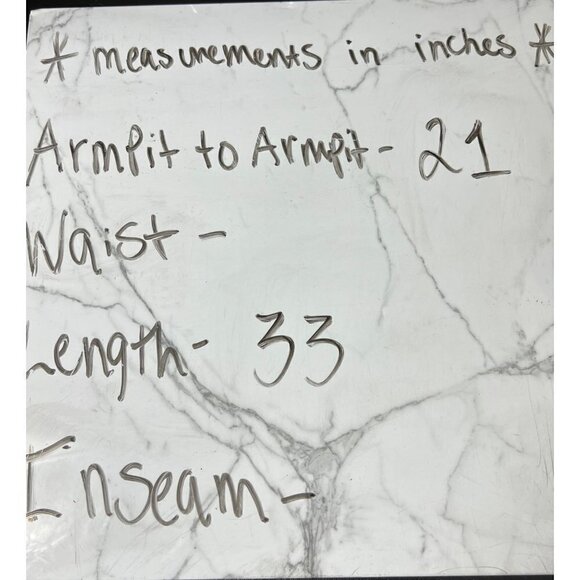 * measurements in inches *
Armpit to Armpit - 21
Waist -
Length - 33
Inseam -